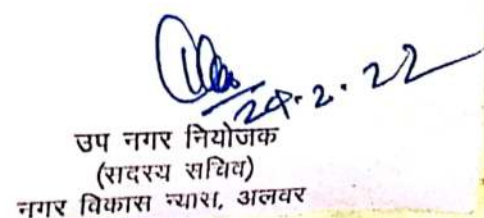 24.2.22
उप नगर नियोजक
(सदस्य सचिव)
नगर विकास न्यास, अलवर